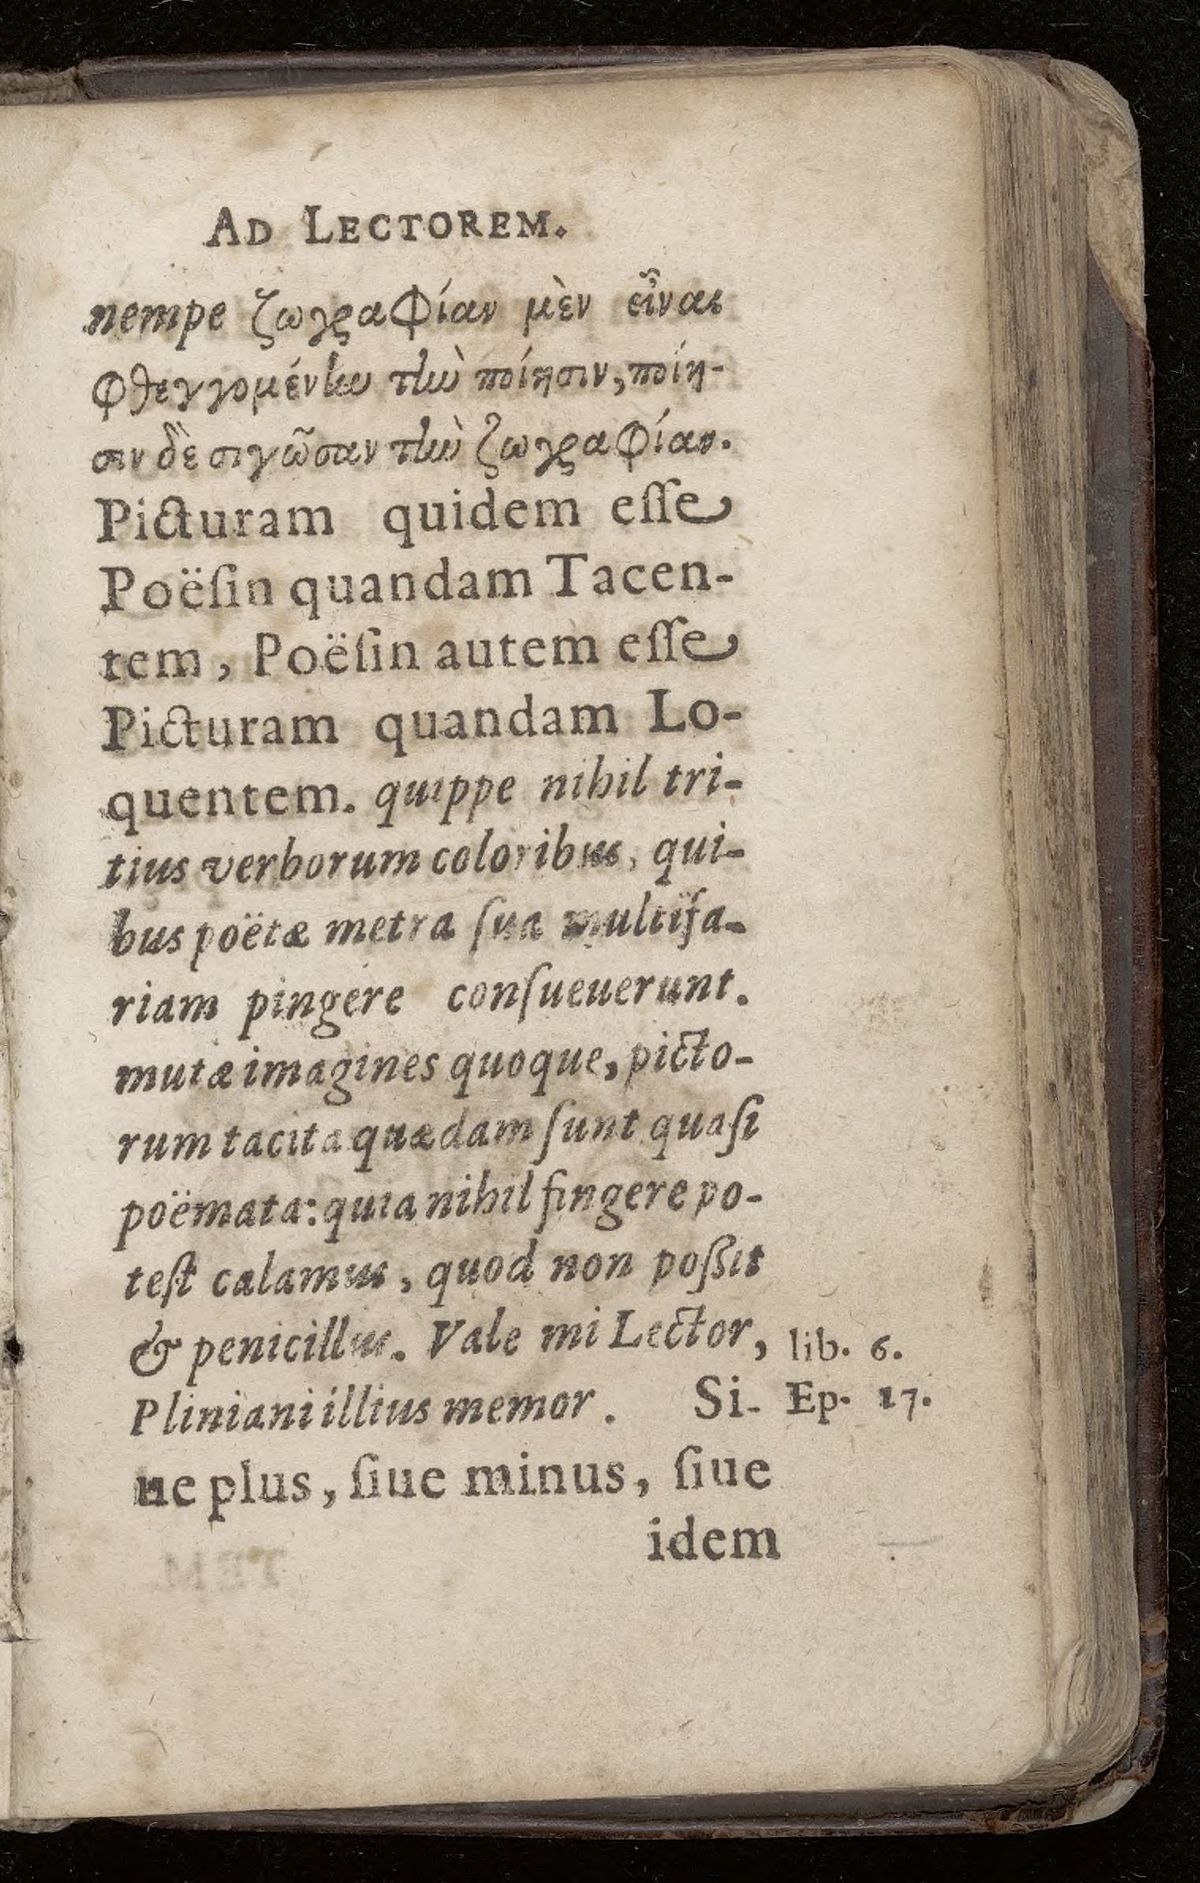 AD LECTOREM.
nempe ζωγραφίαν μὲν εἶναι
φθεγγομένην τὴν ποίησιν, ποίη-
σιν δὲ σιγῶσαν τὴν ζωγραφίαν.
Picturam quidem eſſe
Poëſin quandam Tacen-
tem, Poëſin autem eſſe
Picturam quandam Lo-
quentem. quippe nihil tri-
tius verborum coloribus, qui-
bus poëtæ metra ſua multifa-
riam pingere conſueuerunt.
mutæ imagines quoque, picto-
rum tacita quædam ſunt quaſi
poëmata: quia nihil fingere po-
teſt calamus, quod non poßit
& penicillus. Vale mi Lector, lib. 6.
Pliniani illius memor. Si- Ep. 17.
ue plus, ſiue minus, ſiue
idem